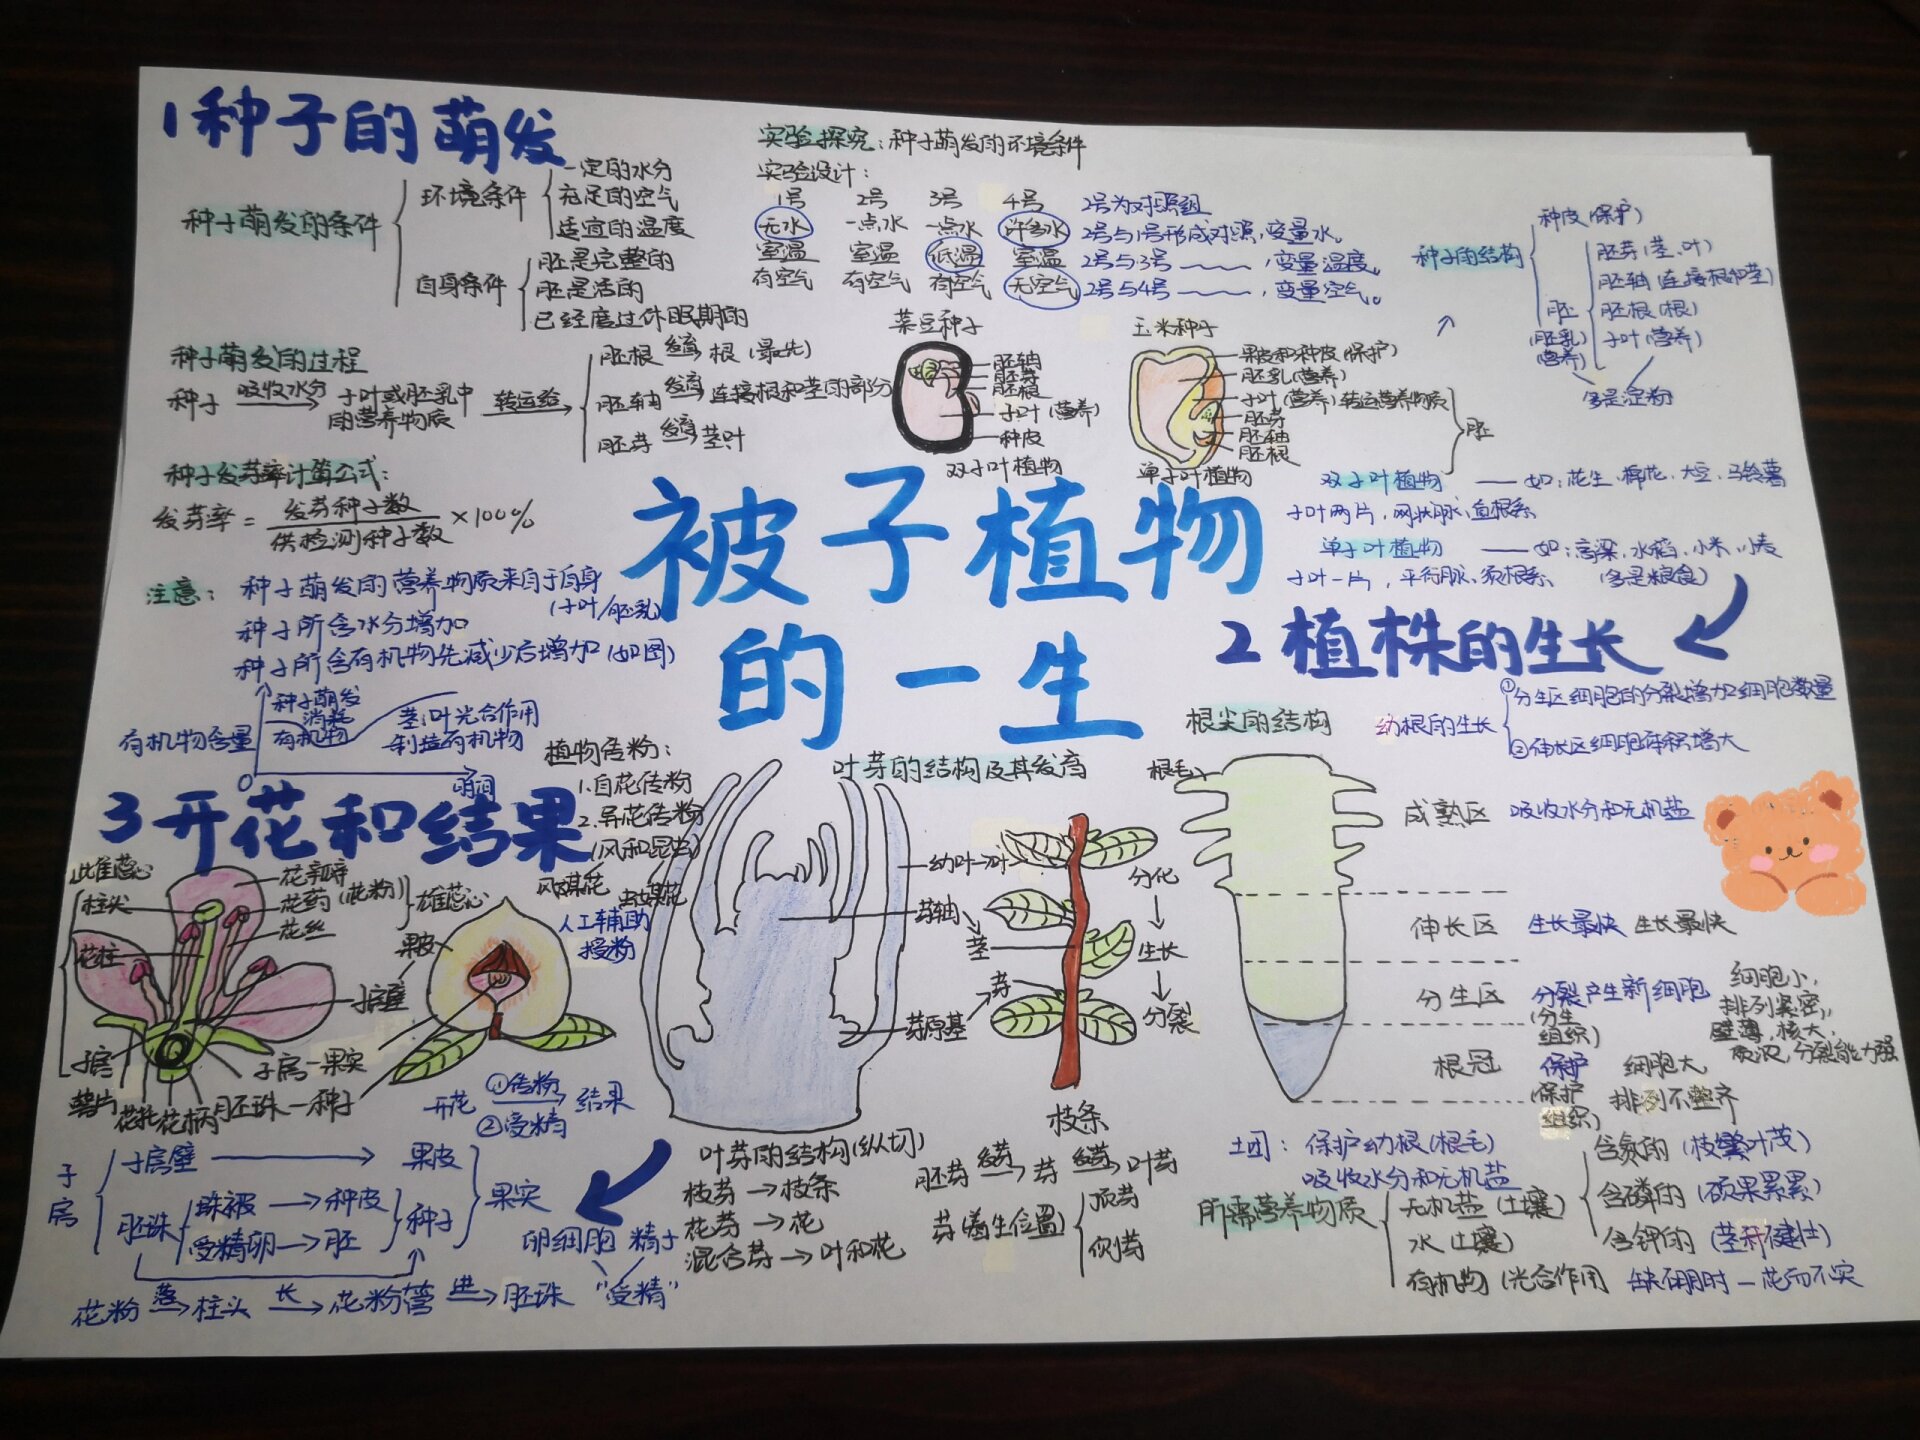 1 种子的萌发
种子萌发的条件
环境条件
一定的水分
充足的空气
适宜的温度
自身条件
胚是完整的
胚是活的
已经度过休眠期的
实验探究：种子萌发的环境条件
实验设计：
1号 2号 3号 4号 2号为对照组
无水 一点水 一点水 许多水 2号与1号形成对照，变量水。
室温 室温 低温 室温 2号与3号 ——，变量温度。
有空气 有空气 有空气 无空气 2号与4号 ——，变量空气。
种子的结构
种皮（保护）
胚
胚芽（茎、叶）
胚轴（连接根和茎）
胚根（根）
子叶（营养）
（胚乳）
（营养）
多是淀粉
种子萌发的过程
种子 吸收水分 → 子叶或胚乳中的营养物质 转运给 →
胚根 发育→ 根（最先）
胚轴 发育→ 连接根和茎的部分
胚芽 发育→ 茎、叶
菜豆种子
胚轴
胚芽
胚根
子叶（营养）
种皮
双子叶植物
玉米种子
果皮和种皮（保护）
胚乳（营养）
子叶（营养）转运营养物质
胚芽
胚轴
胚根
胚
单子叶植物
种子发芽率计算公式：
发芽率 = 发芽种子数 / 供检测种子数 ×100%
双子叶植物 —— 如：花生、棉花、大豆、马铃薯
子叶两片，网状脉，直根系
单子叶植物 —— 如：高粱、水稻、小米、小麦
子叶一片，平行脉、须根系 （多是粮食）
被子植物
的一生
注意：种子萌发的营养物质来自于自身
（子叶/胚乳）
种子所含水分增加
种子所含有机物先减少后增加（如图）
有机物含量
种子萌发
消耗
有机物
茎、叶光合作用
制造有机物
0
时间
2 植株的生长
根尖的结构
幼根的生长
①分生区细胞的分裂增加细胞数量
②伸长区细胞体积增大
根毛
成熟区 吸收水分和无机盐
伸长区 生长最快 生长最快
分生区 分裂产生新细胞
（分生
组织）
细胞小，
排列紧密，
壁薄，核大，
质浓，分裂能力强
根冠 保护
（保护
组织）
细胞大，
排列不整齐
土团：保护幼根（根毛）
吸收水分和无机盐
所需营养物质
无机盐（土壤）
水（土壤）
有机物（光合作用
含氮的（枝繁叶茂）
含磷的（硕果累累）
含钾的（茎秆健壮）
缺硼时一花而不实
叶芽的结构及其发育
幼叶→叶
芽轴→茎
芽原基→芽
分化
↓
生长
↓
分裂
枝条
叶芽的结构（纵切）
枝芽→枝条
花芽→花
混合芽→叶和花
胚芽 发芽→ 芽 发芽→ 叶芽
芽（着生位置）
顶芽
侧芽
3 开花和结果
植物传粉：
1.自花传粉
2.异花传粉
（风和昆虫）
风媒花 虫媒花
人工辅助
授粉
雌蕊心
柱头
花柱
子房
花瓣
花药（花粉）
花丝
雄蕊心
子房壁
果皮
子房—果实
胚珠—种子
萼片
花托
花柄
开花 ①传粉 ②受精 → 结果
子房
子房壁 → 果皮
胚珠
珠被→种皮
受精卵→胚
种子
果实
卵细胞 精子
“受精”
花粉 落→ 柱头 长→ 花粉管 进→ 胚珠